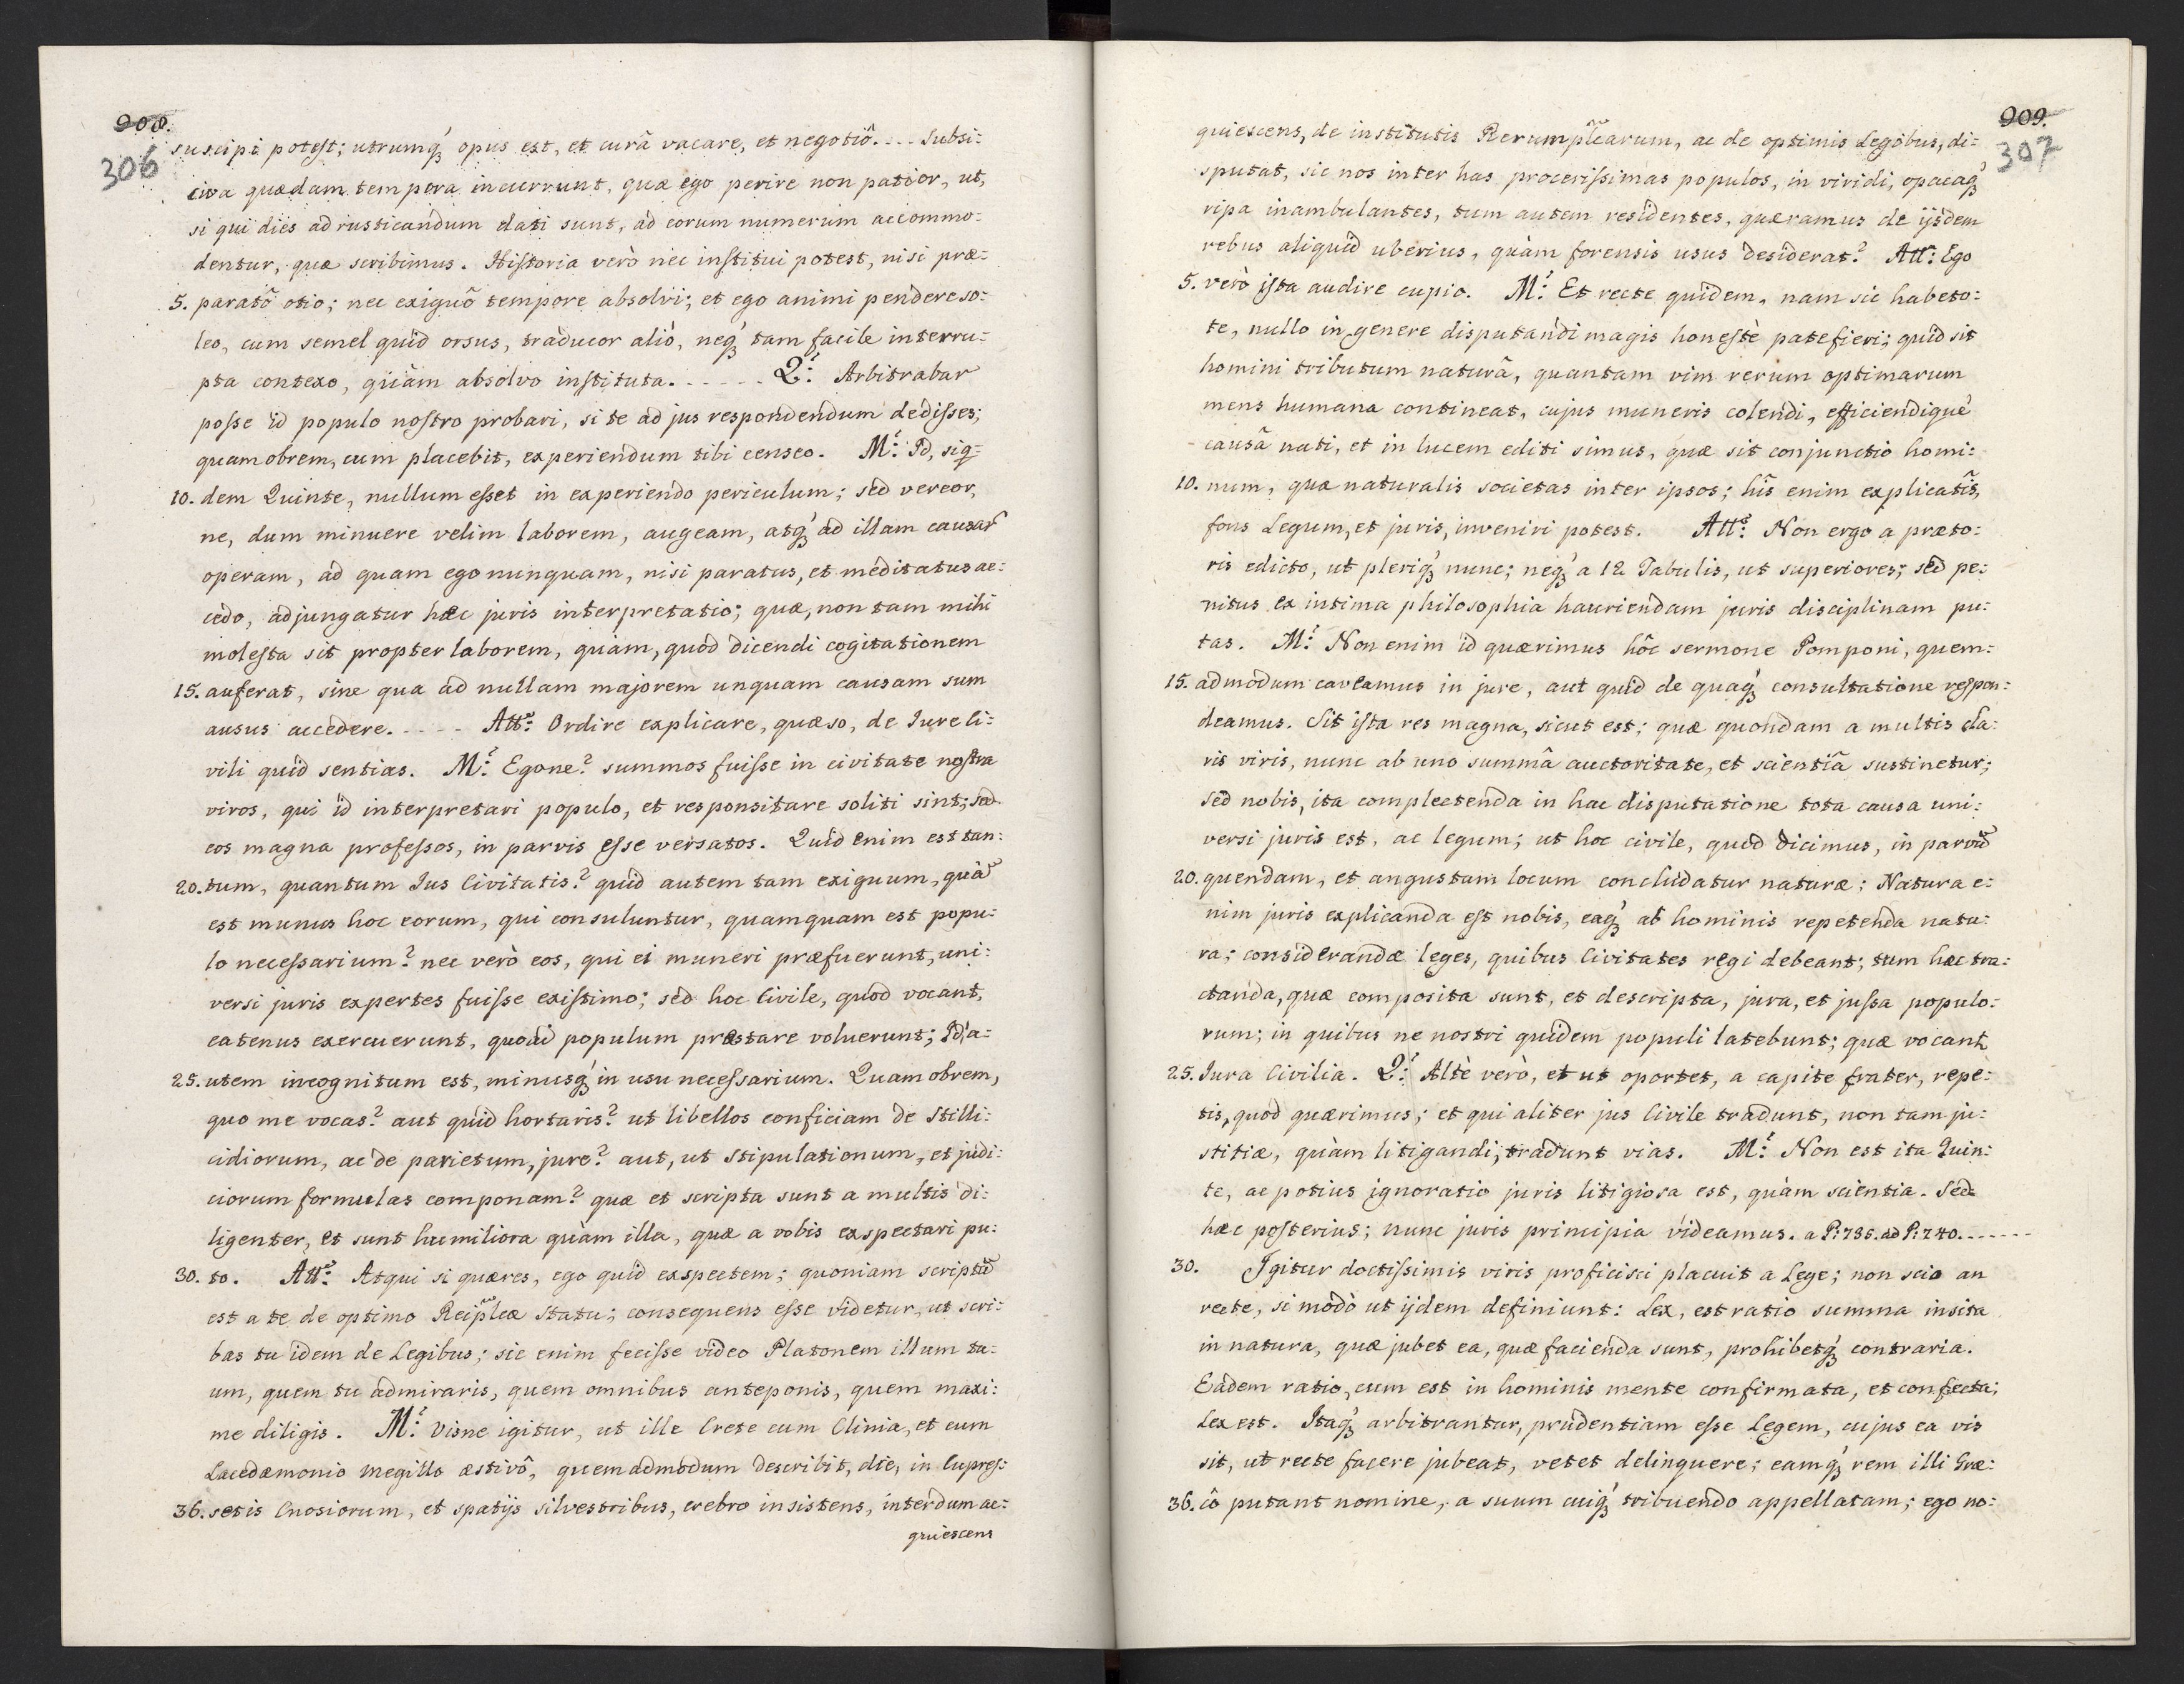 908.
306
suscipi potest; utrumq́ꝫ opus est, et curâ vacare, et negotiô.... Subsi:
civa quædam tempora incurrunt, quæ ego perire non patior, ut,
si qui dies ad rusticandum dati sunt, ad eorum numerum accommo:
dentur, quæ scribimus. Historia verò nec institui potest, nisi præ:
5. paratô otio; nec exiguô tempore absolvi; et ego animi pendere so:
leo, cum semel quid orsus, traducor aliò, neq́ꝫ tam facile interru:
pta contexo, quàm absolvo instituta. . . . . . Q: Arbitrabar
posse id populo nostro probari, si te ad jus respondendum dedisses;
quamobrem, cum placebit, experiendum tibi censeo. M: Id, siq:
10. dem Quinte, nullum esset in experiendo periculum; sed vereor,
ne, dum minuere velim laborem, augeam, atq́ꝫ ad illam causar̃
operam, ad quam ego nunquam, nisi paratus, et meditatus ac:
cedo, adjungatur hæc juris interpretatio; quæ, non tam mihi
molesta sit propter laborem, quàm, quod dicendi cogitationem
15. auferat, sine qua ad nullam majorem unquam causam sum
ausus accedere. . . . . Att: Ordire explicare, quæso, de Jure Ci:
vili quid sentias. M: Egone? summos fuisse in civitate nostra
viros, qui id interpretari populo, et responsitare soliti sint; sed
eos magna professos, in parvis esse versatos. Quid enim est tan:
20. tum, quantum Jus Civitatis? quid autem tam exiguum, quã
est munus hoc eorum, qui consuluntur, quamquam est popu:
lo necessarium? nec verò eos, qui ei muneri præfuerunt, uni:
versi juris expertes fuisse existimo; sed hoc Civile, quod vocant,
eatenus exercuerunt, quoad populum præstare voluerunt; Id, a:
25. utem incognitum est, minusq́ꝫ in usu necessarium. Quamobrem,
quo me vocas? aut quid hortaris? ut libellos conficiam de Stilli:
cidiorum, ac de parietum, jure? aut, ut stipulationum, et judi:
ciorum formulas componam? quæ et scripta sunt a multis di:
ligenter, et sunt humiliora quàm illa, quæ a vobis exspectari pu:
30. to. Att: Atqui si quæres, ego quid exspectem; quoniam scriptũ
est a te de optimo Reip̃lcæ Statu; consequens esse videtur, ut scri:
bas tu idem de Legibus; sic enim fecisse video Platonem illum tu:
um, quem tu admiraris, quem omnibus anteponis, quem maxi:
me diligis. M: Visne igitur, ut ille Crete cum Clinia, et cum
Lacedæmonio Megillo æstivô, quemadmodum describit, die, in Cupres:
36. setis Cnosiorum, et spatijs silvestribus, crebro insistens, interdum ac:
quiescens
909.
307
quiescens, de institutis Rerump̃lcarum, ac de optimis Legibus, di:
sputat, sic nos inter has procerissimas populos, in viridi, opacaq́ꝫ
ripa inambulantes, tum autem residentes, quæramus de ijsdem
rebus aliquid uberius, quàm forensis usus desiderat? Att: Ego
5. verò ista audire cupio. M: Et recte quidem, nam sic habeto:
te, nullo in genere disputandi magis honestè patefieri; quid sit
homini tributum naturâ, quantam vim rerum optimarum
mens humana contineat, cujus muneris colendi, efficiendiquè
causâ nati, et in lucem editi simus, quæ sit conjunctio homi:
10. num, quæ naturalis societas inter ipsos; hîs enim explicatîs,
fons Legum, et juris, inveniri potest. Att: Non ergo a præto:
ris edicto, ut pleriq́ꝫ nunc; neq́ꝫ a 12 Tabulis, ut superiores; sed pe:
nitus ex intima philosophia hauriendam juris disciplinam pu:
tas. M: Non enim id quærimus hôc sermone Pomponi, quem:
15. admodum caveamus in jure, aut quid de quaq́ꝫ consultatione respon:
deamus. Sit ista res magna, sicut est; quæ quondam a multis cla:
ris viris, nunc ab uno summâ auctoritate, et scientiâ sustinetur;
sed nobis, ita complectenda in hac disputatione tota causa uni:
versi juris est, ac legum; ut hoc civile, quod dicimus, in parvũ
20. quendam, et angustum locum concludatur naturæ; Natura e:
nim juris explicanda est nobis, eaq́ꝫ ab hominis repetenda natu:
ra; considerandæ leges, quibus Civitates regi debeant; tum hæc tra:
ctanda, quæ composita sunt, et descripta, jura, et jussa populo:
rum; in quibus ne nostri quidem populi latebunt; quæ vocant
25. Jura Civilia. Q: Altè verò, et ut oportet, a capite frater, repe:
tis, quod quærimus; et qui aliter jus Civile tradunt, non tam ju:
stitiæ, quàm litigandi, tradunt vias. M: Non est ita Quin:
te, ac potius ignoratio juris litigiosa est, quàm scientia. Sed
hæc posterius; nunc juris principia videamus. a P: 735. ad P: 740. . . . . . .
30. Igitur doctissimis viris proficisci placuit a Lege; non scio an
recte, si modò ut ijdem definiunt: Lex, est ratio summa insita
in natura, quæ jubet ea, quæ facienda sunt, prohibetq́ꝫ contraria.
Eadem ratio, cum est in hominis mente confirmata, et confecta;
Lex est. Itaq́ꝫ arbitrantur, prudentiam esse Legem, cujus ea vis
sit, ut recte facere jubeat, vetet delinquere; eamq́ꝫ rem illi Græ:
36. cô putant nomine, a suum cuiq́ꝫ tribuendo appellatam; ego no: